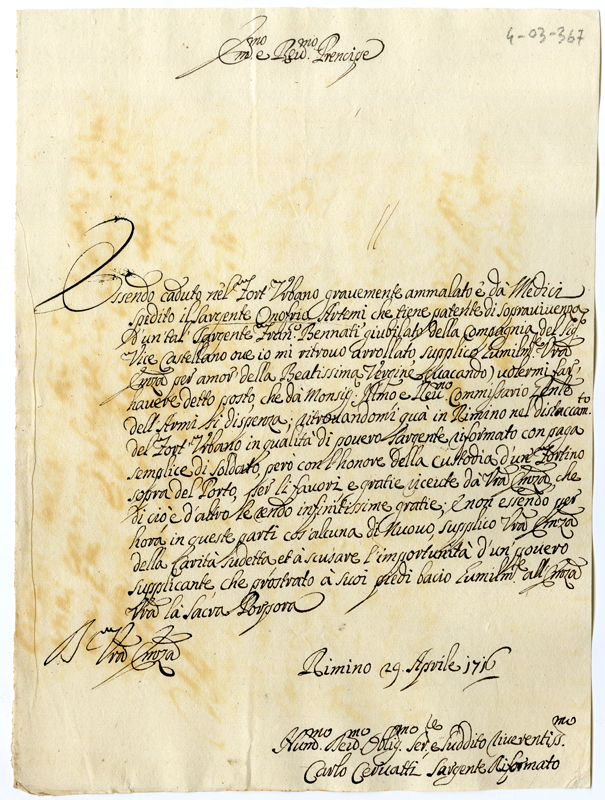 4-03-367
Em.mo e Reu.mo Prencipe
Essendo caduto nel Fort' Vrbano gravemente ammalato e da Medici
spedito il Sargente Onofrio Artemi che tiene patente di Sopravivenza
d'un tal Sargente Fran.o Bennati giubilato della Compagnia del Sig.
Vice Castellano oue io mi ritrouo arrollato, supplico humilm.te Vra
Emza per amor della Beatissima Vergine (vacando) volermi far'
havere detto posto che da Monsig.r Illmo e Reu.mo Commissario
dell'Armi si dispenza; ritrouandomi quà in Rimino nel distaccam.to
del Fort' Vrbano in qualità di povero Sargente riformato con paga
semplice di Soldato, però con l'honore della custodia d'un Fortino
sopra del Porto, per li favori e gratie riceute da Vra Emza, che
di ciò e d'altro le rendo infinitissime gratie; E non essendo per
hora in queste parti cos' alcuna di Nuouo, supplico Vra Emza
della Carità sudetta et à scusare l'importunità d'un povero
supplicante, che prostrato à suoi piedi bacio humilm.te all' Emza
Vra la Sacra Porpora
Vra Emza
Rimino 29 Aprile 1716
Hum.mo Deu.mo Oblig.mo Ser.e e Suddito Riverentiss.mo
Carlo Ceruatti Sargente Riformato